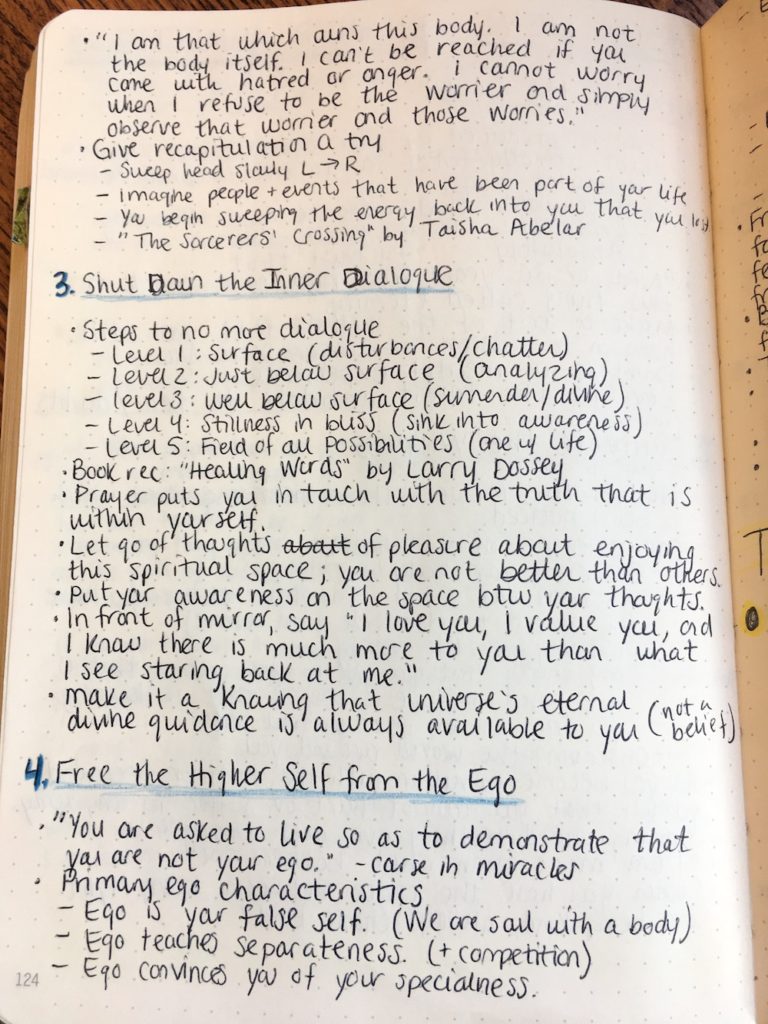 • "I am that which owns this body. I am not
the body itself. I can't be reached if you
come with hatred or anger. I cannot worry
when I refuse to be the worrier and simply
observe that worrier and those worries."
• Give recapitulation a try
- Sweep head slowly L → R
- imagine people + events that have been part of your life
- You begin sweeping the energy back into you that you lost
- "The Sorcerers' Crossing" by Taisha Abelar
3. Shut Down the Inner Dialogue
• Steps to no more dialogue
- Level 1: Surface (disturbances/chatter)
- Level 2: Just below surface (analyzing)
- Level 3: well below surface (surrender/divine)
- Level 4: Stillness in bliss (sink into awareness)
- Level 5: Field of all Possibilities (one w/ life)
• Book rec: "Healing Words" by Larry Dossey
• Prayer puts you in touch with the truth that is
within yourself.
• Let go of thoughts about of pleasure about enjoying
this spiritual space; you are not better than others.
• Put your awareness on the space btw your thoughts.
• In front of mirror, say "I love you, I value you, and
I know there is much more to you than what
I see staring back at me."
• make it a knowing that universe's eternal (not a
divine guidance is always available to you belief)
4. Free the Higher Self from the Ego
• "You are asked to live so as to demonstrate that
you are not your ego." - course in miracles
• Primary ego characteristics
- Ego is your false self. (We are soul with a body)
- Ego teaches separateness. (+ competition)
- Ego convinces you of your specialness.
124